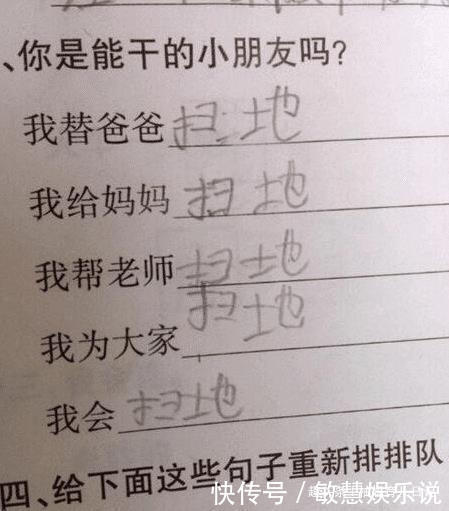 、你是能干的小朋友吗?
我替爸爸扫地
我给妈妈扫地
我帮老师扫地
我为大家扫地
我会扫地
四、给下面这些句子重新排排队
快传号/敏慧娱乐说